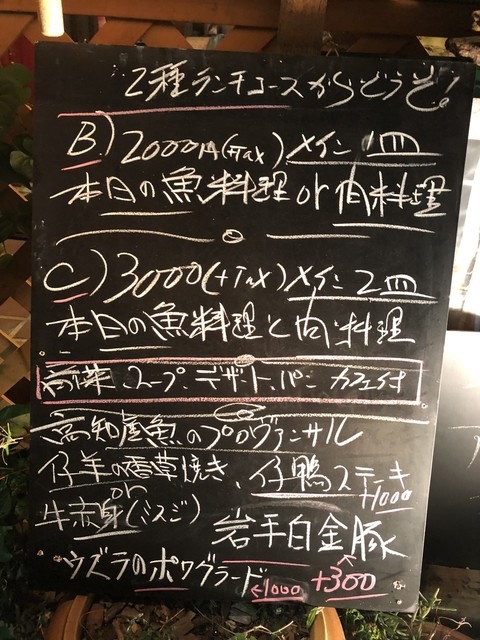 2種ランチコースからどうぞ!
B.) 2000円(+Tax) メイン 1皿
本日の魚料理 or 肉料理
C) 3000(+Tax) メイン 2皿
本日の魚料理と肉料理
前菜、スープ、デザート、パン カフェ付
高知産魚のプロヴァンサル
仔羊の香草焼き、仔鴨ステーキ
+1000
or
牛赤身(ミスジ) 岩手白金豚
+300
ウズラのポワグラード
+1000